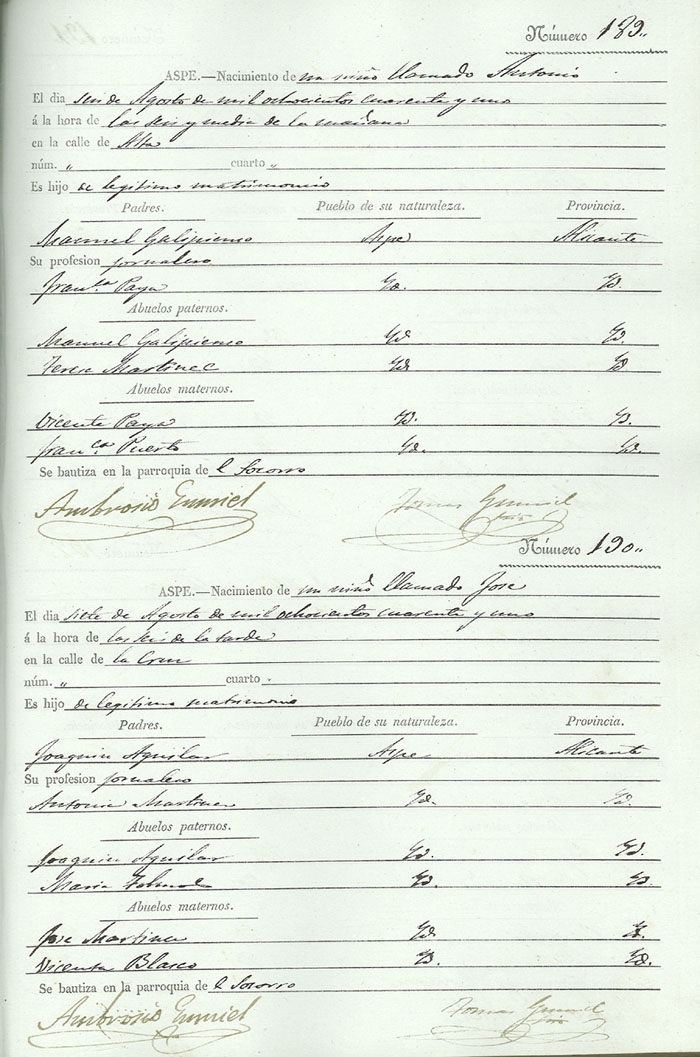 Número 189..
ASPE.—Nacimiento de un niño llamado Antonio
El dia seis de Agosto de mil ochocientos cuarenta y uno
á la hora de las seis y media de la mañana
en la calle de Alta
núm. „ cuarto „
Es hijo de legitimo matrimonio
Padres. Pueblo de su naturaleza. Provincia.
Manuel Galipienso Aspe Alicante
Su profesion jornalero
Fran.ca Paya Yd. Yd.
Abuelos paternos.
Manuel Galipienso Yd Yd.
Teresa Martinez Yd Yd
Abuelos maternos.
Vicente Paya Yd. Yd.
Fran.ca Puerto Yd. Yd.
Se bautiza en la parroquia de l Socorro
Ambrosio Tomas
Número 190..
ASPE.—Nacimiento de un niño llamado Jose
El dia siete de Agosto de mil ochocientos cuarenta y uno
á la hora de las seis de la tarde
en la calle de la Cruz
núm. „ cuarto „
Es hijo de legitimo matrimonio
Padres. Pueblo de su naturaleza. Provincia.
Joaquin Aguilar Aspe Alicante
Su profesion jornalero
Antonia Martinez Yd. Yd.
Abuelos paternos.
Joaquin Aguilar Yd. Yd.
Maria Yd. Yd.
Abuelos maternos.
Jose Martinez Yd Yd.
Vicenta Blasco Yd. Yd.
Se bautiza en la parroquia de l Socorro
Ambrosio Tomas